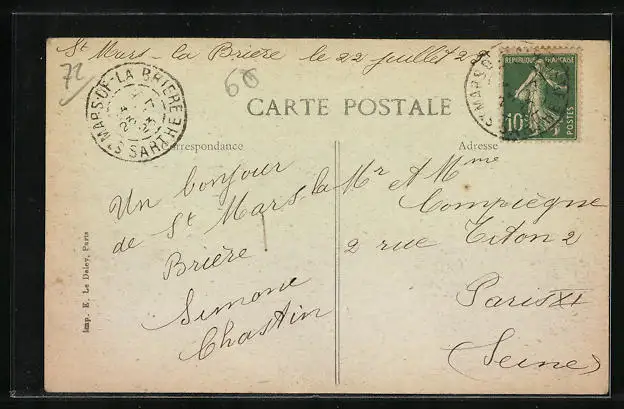 St Mars-la Brière le 22 juillet 23
72
60
St MARS-DE-LA BRIERE
SARTHE
REPUBLIQUE FRANÇAISE
10c
POSTES
CARTE POSTALE
Correspondance
Adresse
Un bonjour
de St Mars-la
Brière
Simone
Chastin
Mr et Mme
Compiègne
2 rue Titon 2
Paris XI
(Seine)
Imp. E. Le Deley, Paris